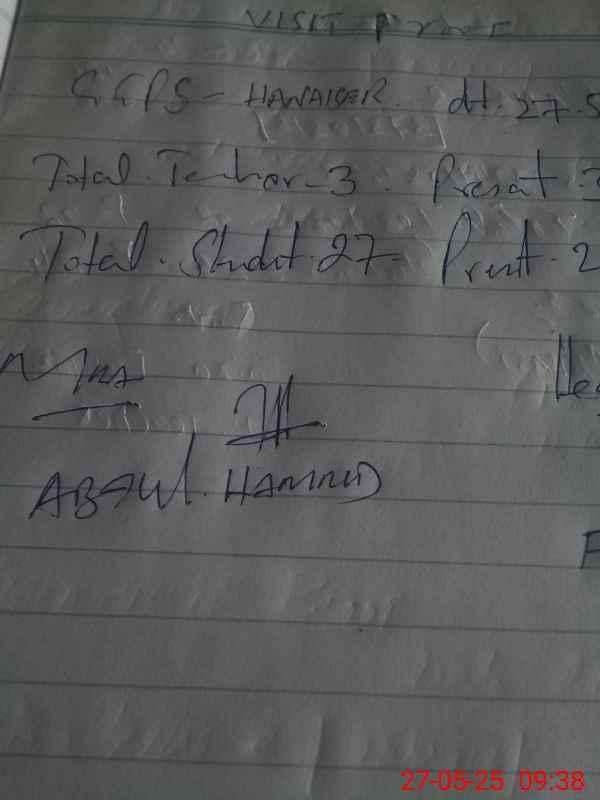 VISIT Proof
GGPS - HAWAIBER. dt. 27.5
Total. Teacher - 3. Present. 3
Total. Studt. 27 - Presnt. 2
ABdul. HAMMID
27-05-25 09:38